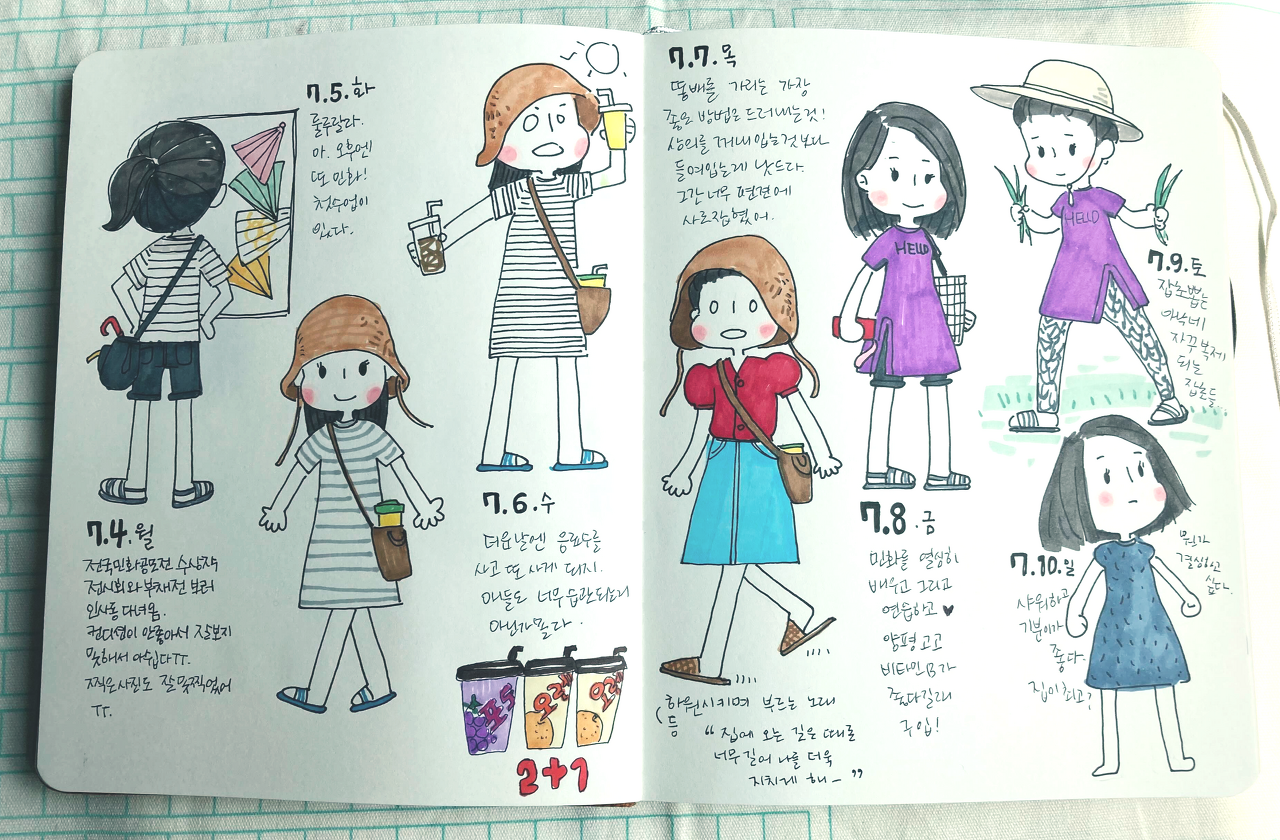 7.4.월
전국민화공모전 수상작
전시회와 부채전 보러
인사동 다녀옴.
컨디션이 안좋아서 잘보지
못해서 아쉽다ㅠ.
찍은사진도 잘못찍었어
ㅠ.
7.5.화
룰루랄라.
아. 오후엔
또 민화!
첫수업이
있다.
7.6.수
더운날엔 음료수를
사고 또 사게 되지.
애들도 너무 습관되는게
아닌가몰라.
포도
오렌
오렌
2+1
7.7.목
똥배를 가리는 가장
좋은 방법은 드러내는것!
상의를 꺼내입는것보다
들여입는게 낫드다.
그간 너무 편견에
사로잡혔어.
하원시키며 부르는 노래
등
“집에 오는 길은 때론
너무 길어 나를 더욱
지치게 해~”
HELLO
7.8.금
민화를 열심히
배우고 그리고
연습하고 ♥
양평고고
비타민B가
좋다길래
구입!
HELLO
7.9.토
잡초뽑는
아낙네
자꾸 복제
되는
잡초들..
7.10.일
샤워하고
기분이가
좋다.
집이 최고?
뭔가
결심하고
싶다.